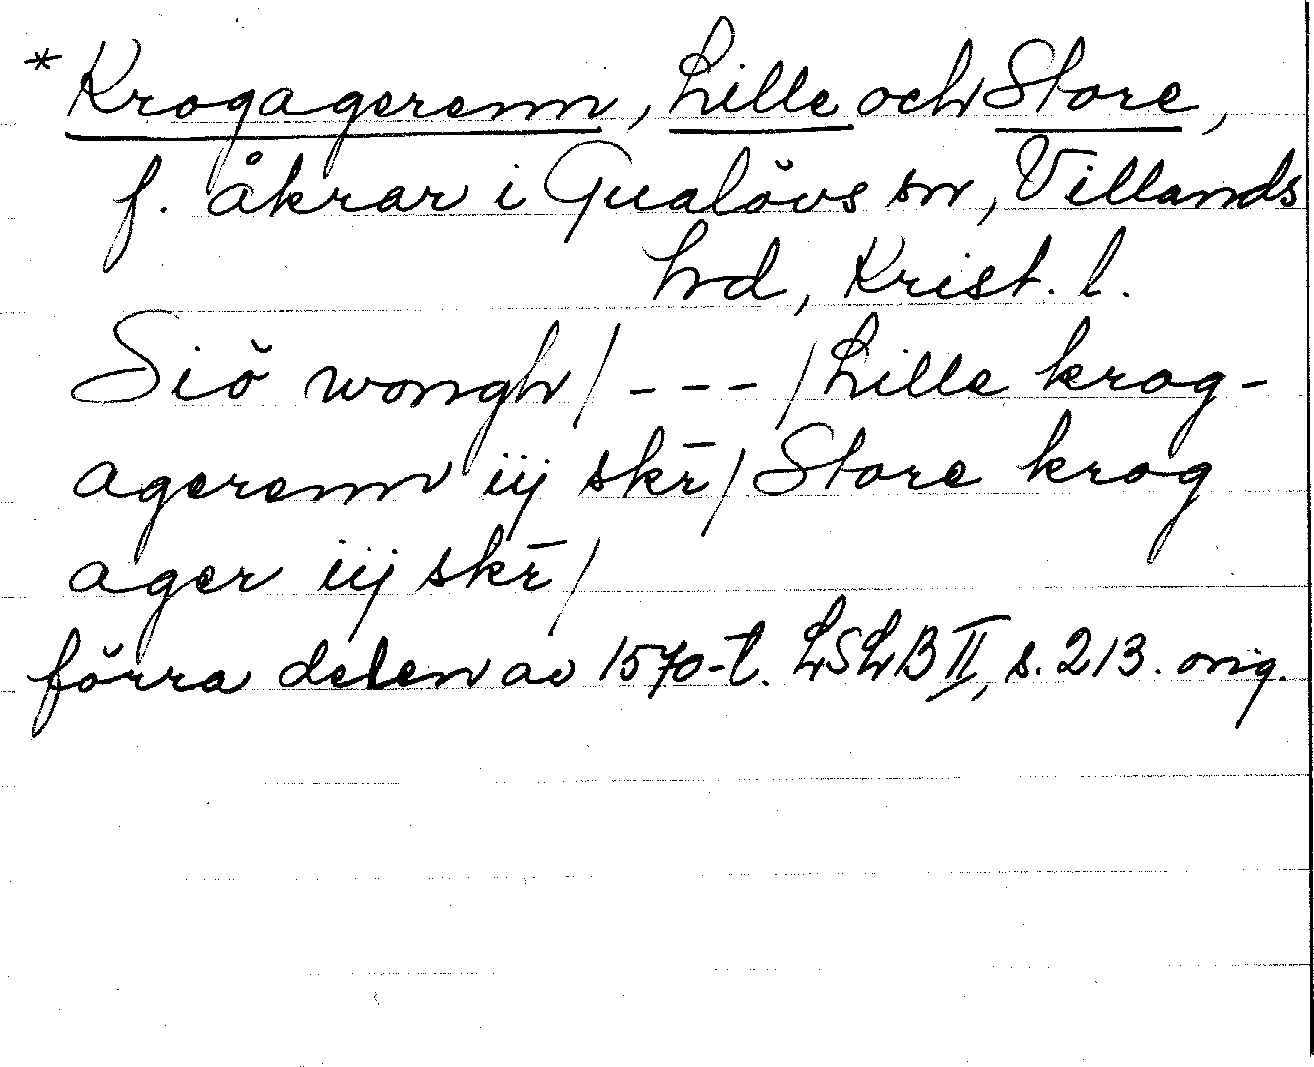 * Krogagerenn, Lille och Store,
f. åkrar i Gualövs sn, Villands
hd, Krist. l.
Siö wongh / - - - / Lille krog-
agerenn iij skr̄ / Store krog
ager iij skr̄ /
förra delen av 1570-t. LSLB II, s. 213. orig.